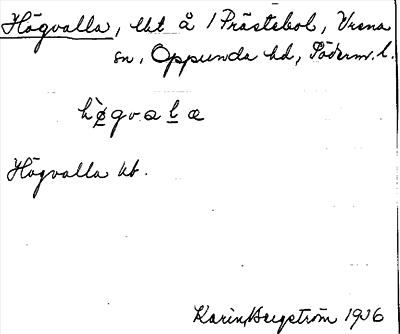 Högvalla, lht å 1 Prästebol, Vrena
sn, Oppunda hd, Söderm. l.
hø̀gvaḻa
Högvalla kb.
Karin Bergström 1936